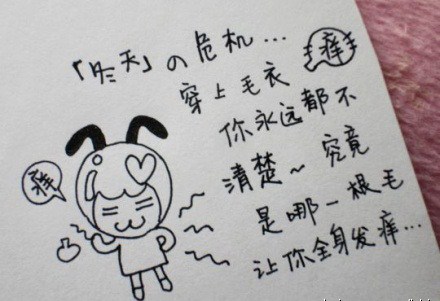 「昨天」の危机...
痒
穿上毛衣
你永远都不
清楚~究竟
是哪一根毛
让你全身发痒...
痒